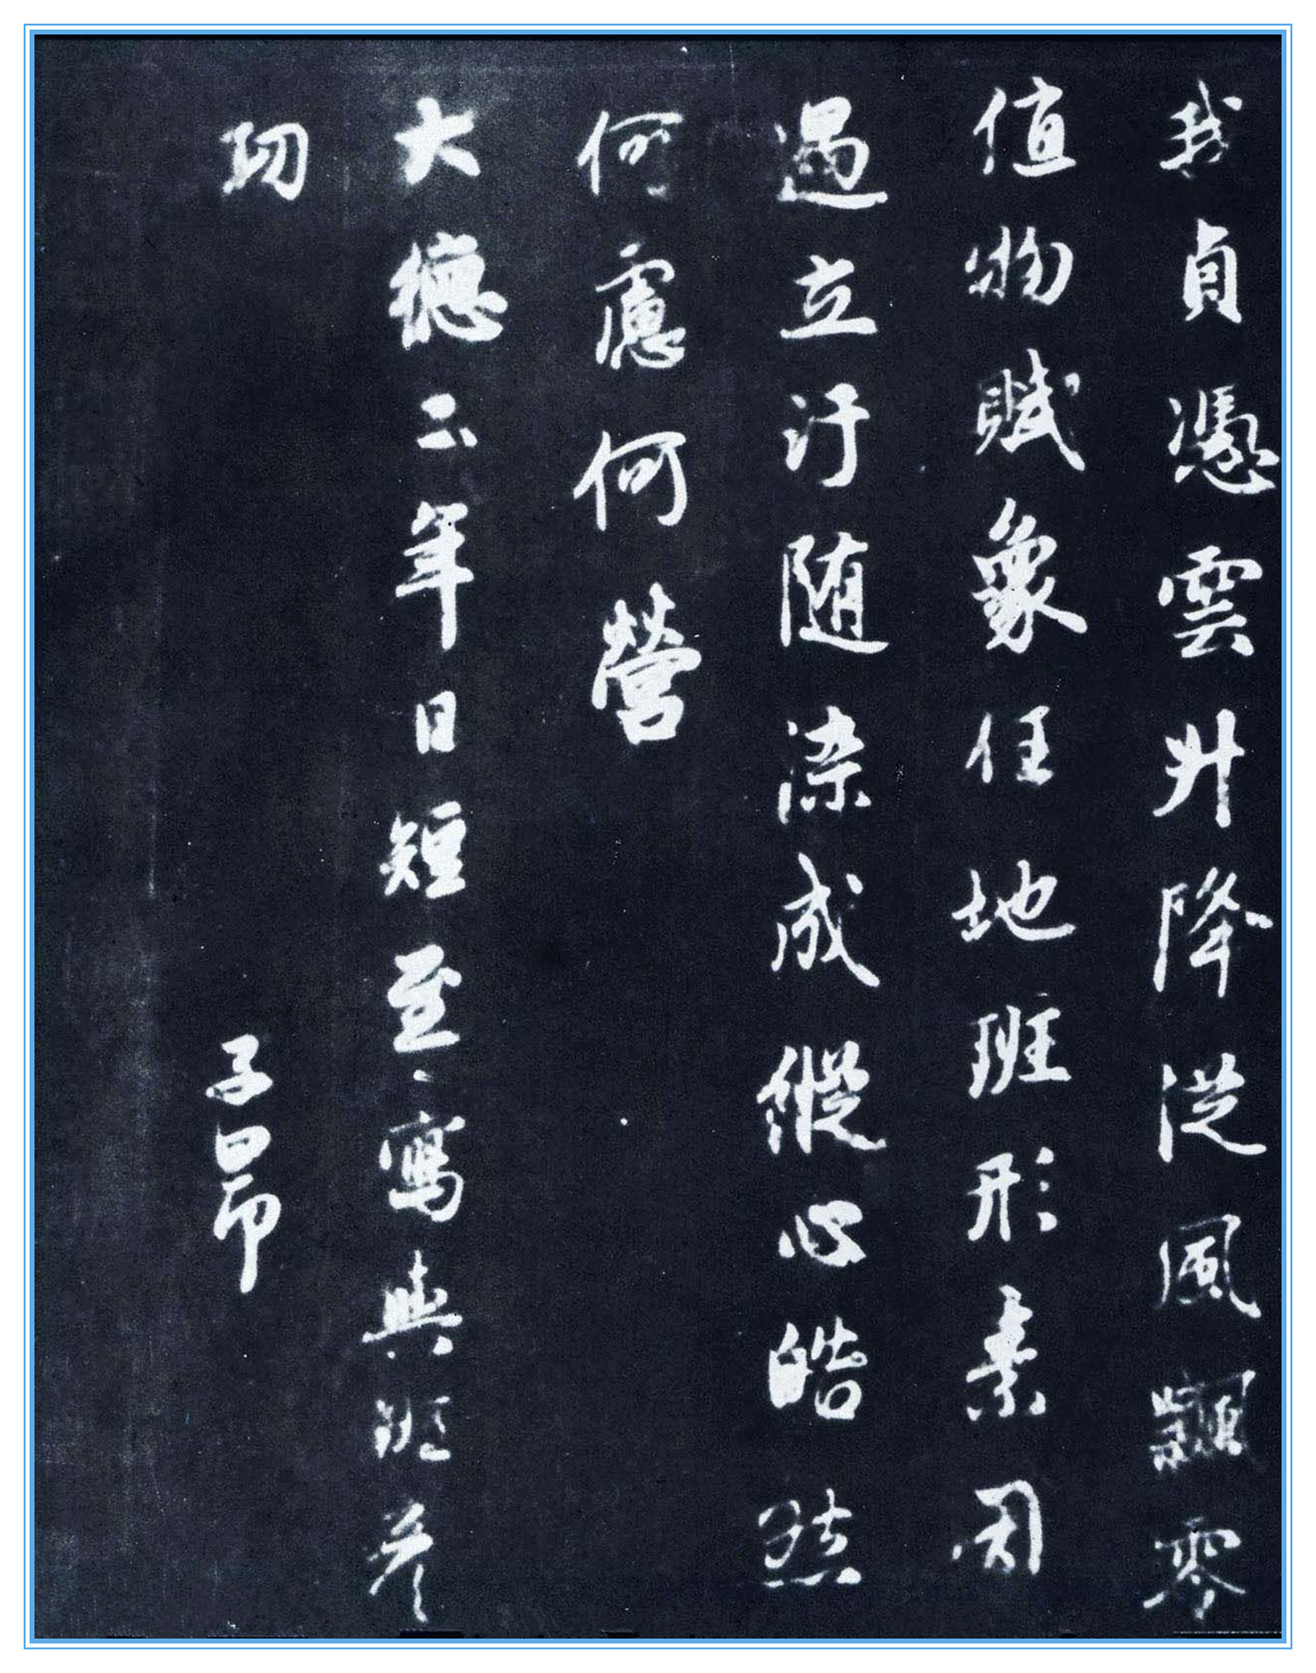 我貞憑雲升降從風飄零
值物賦象任地班形素因
遇立汙隨染成縱心皓然
何慮何營
大德二年日短至寫與班彥
功 子昂